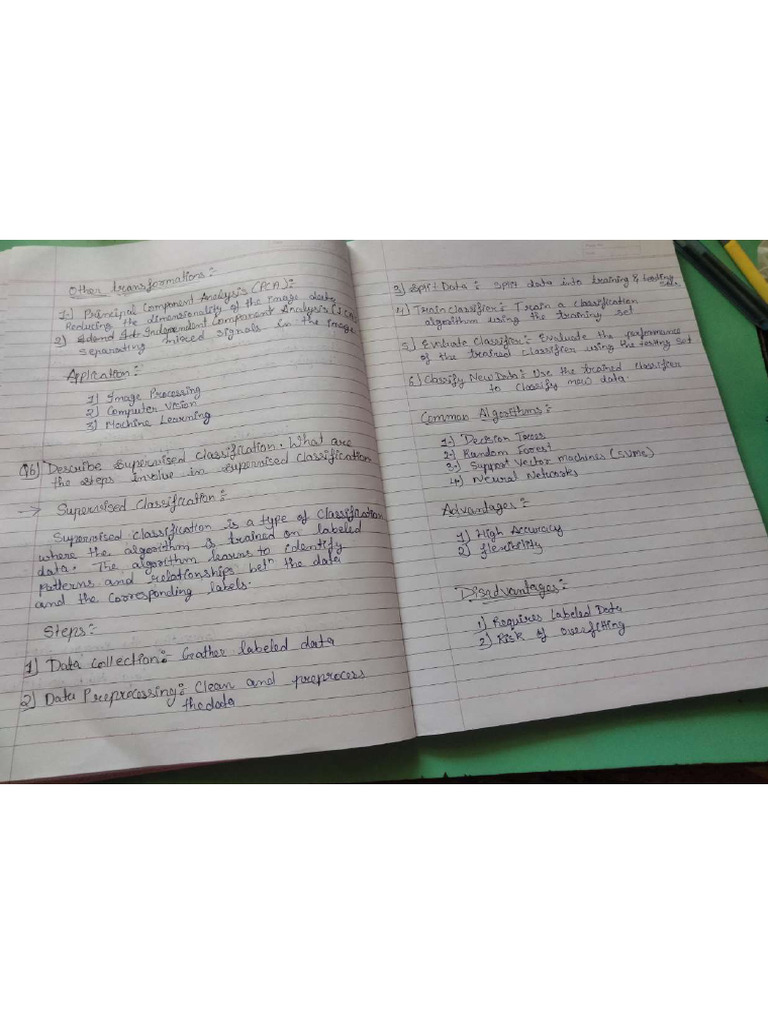 Other transformations:-
1-) Principal Component Analysis (PCA):-
Reducing the dimensionality of the image data
2) Independent Component Analysis (ICA)
separating mixed signals in the image
Application:-
1) Image Processing
2) Computer Vision
3) Machine Learning
Q6) Describe Supervised Classification. What are
the steps involve in supervised classification
→ Supervised Classification:-
Supervised classification is a type of classification
where the algorithm is trained on labeled
data. The algorithm learns to identify
patterns and relationships betn the data
and the corresponding labels.
Steps:-
1) Data Collection:- Gather labeled data
2) Data Preprocessing:- Clean and preprocess
the data
3) Split Data:- Split data into training & testing
4) Train Classifier:- Train a classification
algorithm using the training set
5) Evaluate Classifier:- Evaluate the performance
of the trained classifier using the testing set
6) Classify New Data:- Use the trained classifier
to classify new data.
Common Algorithms:-
1-) Decision Trees
2-) Random Forest
3-) Support Vector Machines (SVMs)
4-) Neural Networks
Advantages:-
1) High Accuracy
2) flexibility
Disadvantages:-
1) Requires Labeled Data
2) Risk of Overfitting